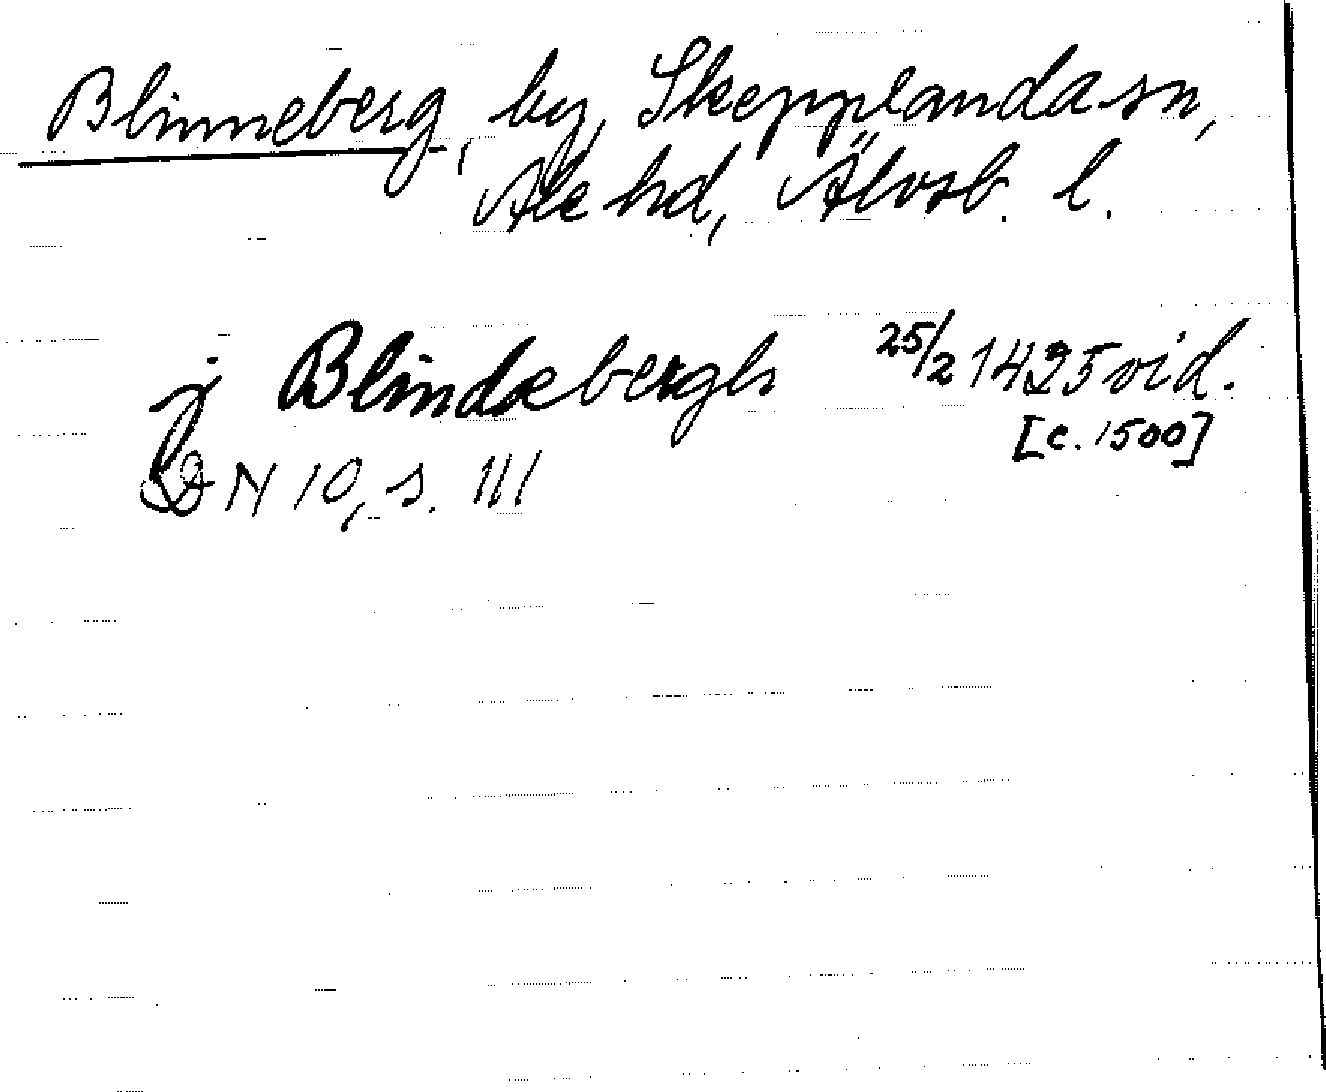 Blinneberg, by, Skepplanda sn,
Ale hd, Älvsb. l.
j Blindæbergh 25/2 1425 vid.
[c. 1500]
DN 10, s. 111